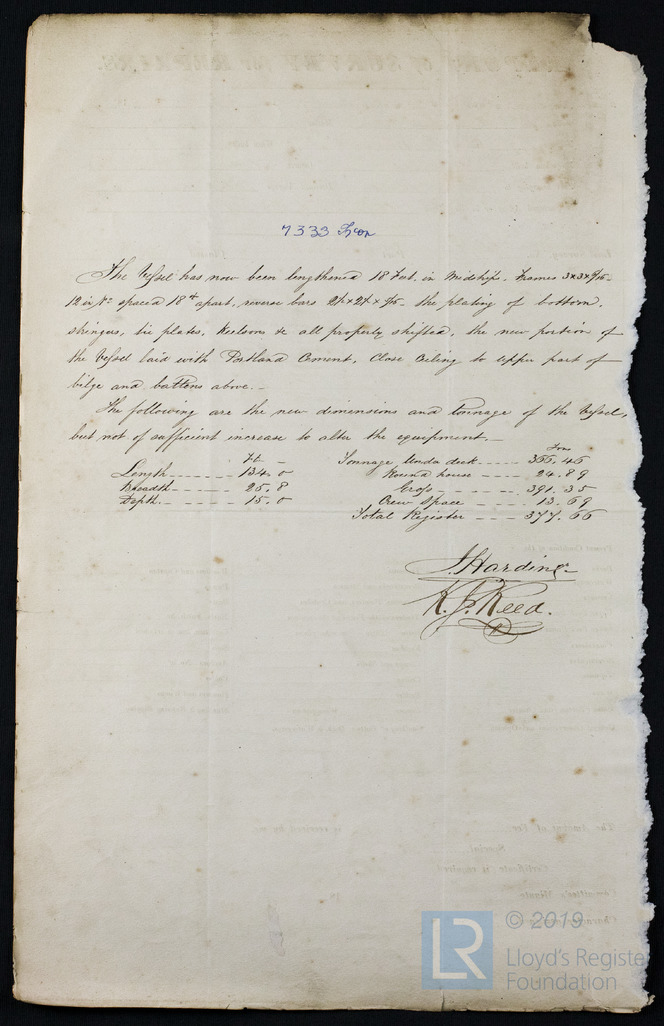 7333 Iron
The Vessel has now been lengthened 18 Feet in Midships. Frames 3x3x6/16
12 in pt spaced 18 in apart, reverse bars 2½ x 2½ x 5/16 the plating of bottom,
stringers, tie plates, Keelsons &c all properly shifted, the new portion of
the Vessel laid with Portland Cement, Close Ceiling to upper part of
bilge and battens above.
The following are the new dimensions and Tonnage of the Vessel,
but not of sufficient increase to alter the equipment,
Ft
Length 134.0
Breadth 25.8
Depth 15.0
Tons
Tonnage Under deck 366.46
Round house 24.89
Gross 391.35
Crew Space 13.69
Total Register 377.66
J. Harding
K. J. Reed.
LR
© 2019
Lloyd's Registe
Foundation